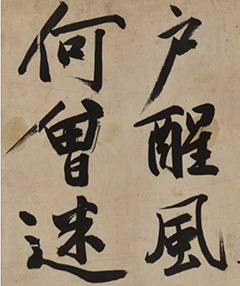 户醒風
何曽迷